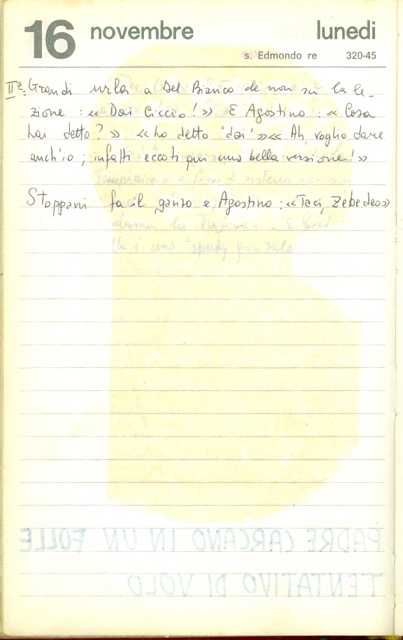 16 novembre lunedì
s. Edmondo re 320-45
IIª: Grandi urla a Del Bianco che non sa la le-
zione: «Dai Ciccio!» E Agostino: «Cosa
hai detto?» «ho detto 'dai'» «Ah, voglio dare
anch'io; infatti eccoti qui una bella versione!»
Stoppani fa il ganzo e Agostino: «Taci, Zebedeo»
PADRE CARCANO IN UN FOLLE
TENTATIVO DI VOLO